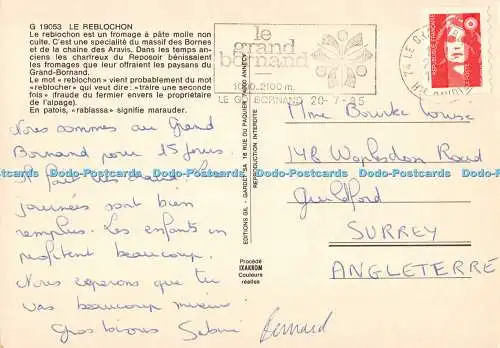 G 19053 LE REBLOCHON
Le reblochon est un fromage à pâte molle non
cuite. C'est une specialité du massif des Bornes
et de la chaine des Aravis. Dans les temps an-
ciens les chartreux du Reposoir bénissaient
les fromages que leur offraient les paysans du
Grand-Bornand.
Le mot « reblochon » vient probablement du mot
«reblocher» qui veut dire: «traire une seconde
fois» (fraude du fermier envers le propriétaire
de l'alpage).
En patois, «rablassa» signifie marauder.
Nous sommes au Grand
Bornand pour 15 jours.
Il fait très chaud. Les
journées sont bien
remplies. Les enfants en
profitent beaucoup.
Nous esperons que tu
vas beaucoup mieux
Gros bisous Sabine Bernard
le
grand
bornand
1000.2100 m.
LE GD BORNAND 20-7-95
EDITIONS GIL - GARDET SA 18 RUE DU PAQUIER 74000 ANNECY
REPRODUCTION INTERDITE
Procédé
IXAKROM
Couleurs
réelles
Mme Bourke Louise
148 Worplesdon Road
Guildford
SURREY
ANGLETERRE
Postcards Dodo-Postcards Dodo-Postcards Dodo-Postcards Dodo-Postcards